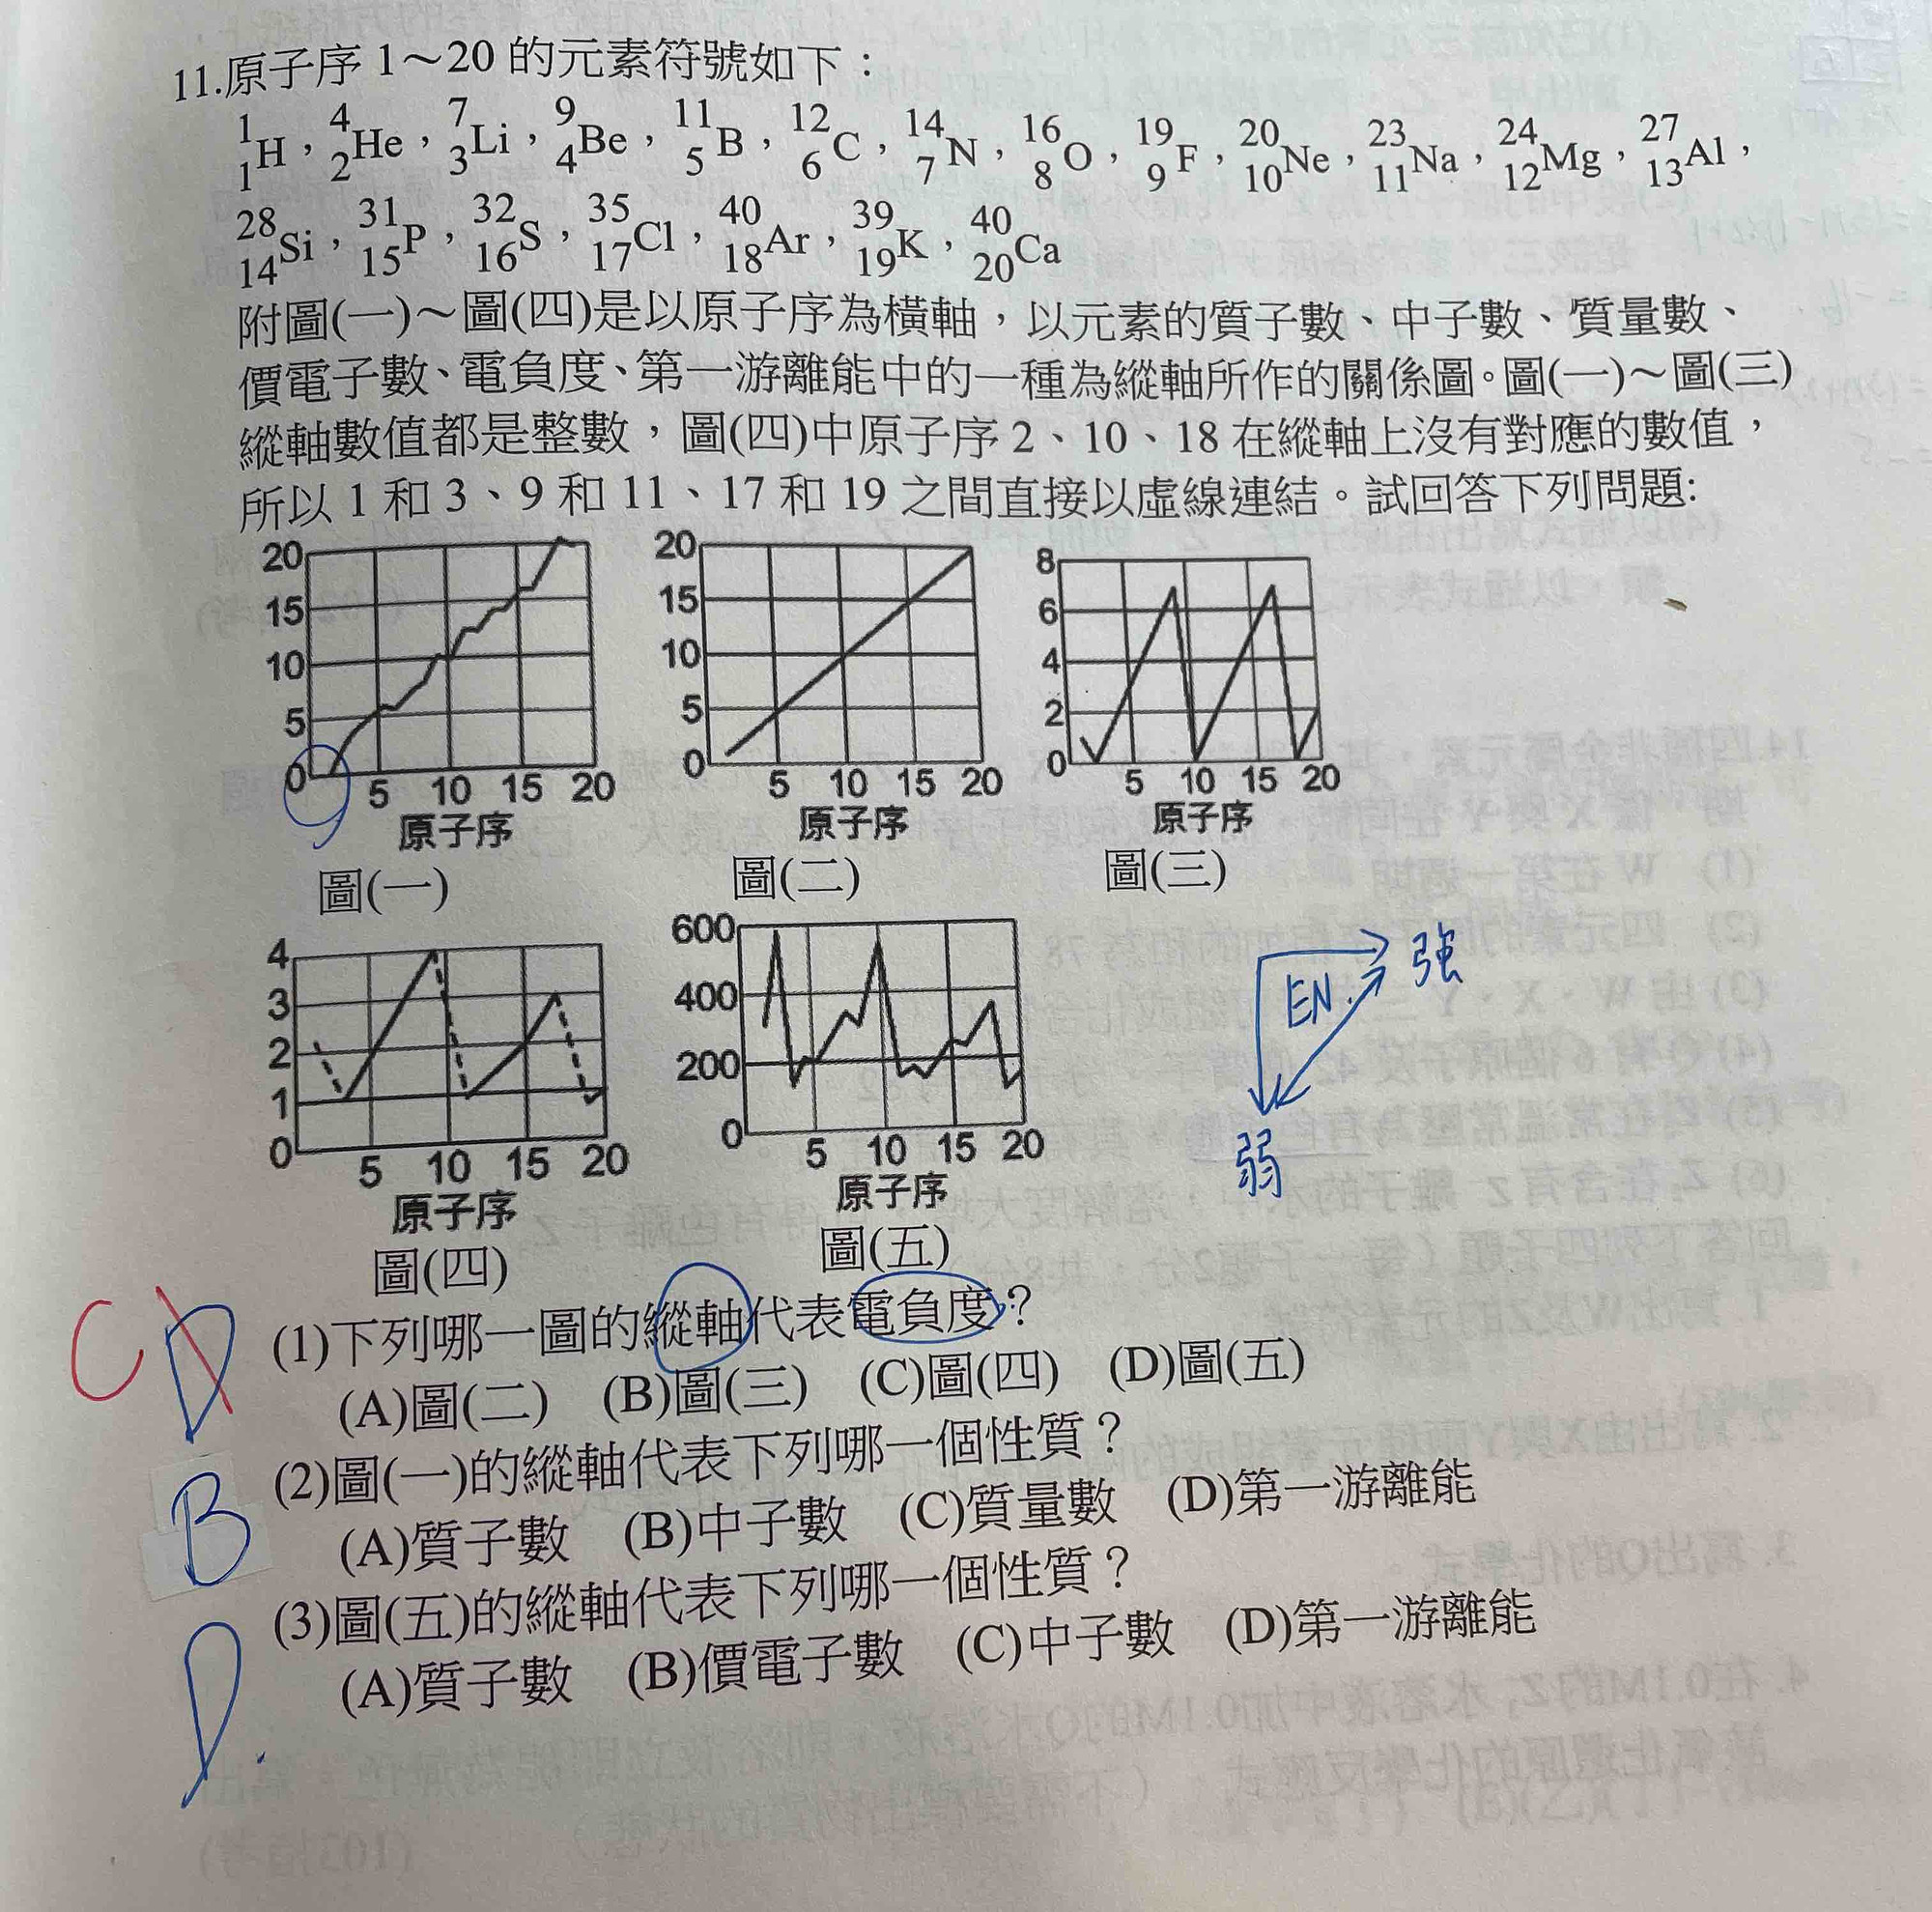 11.原子序 1～20 的元素符號如下：
¹₁H，⁴₂He，⁷₃Li，⁹₄Be，¹¹₅B，¹²₆C，¹⁴₇N，¹⁶₈O，¹⁹₉F，²⁰₁₀Ne，²³₁₁Na，²⁴₁₂Mg，²⁷₁₃Al，
²⁸₁₄Si，³¹₁₅P，³²₁₆S，³⁵₁₇Cl，⁴⁰₁₈Ar，³⁹₁₉K，⁴⁰₂₀Ca
附圖(一)～圖(四)是以原子序為橫軸，以元素的質子數、中子數、質量數、
價電子數、電負度、第一游離能中的一種為縱軸所作的關係圖。圖(一)～圖(三)
縱軸數值都是整數，圖(四)中原子序 2、10、18 在縱軸上沒有對應的數值，
所以 1 和 3、9 和 11、17 和 19 之間直接以虛線連結。試回答下列問題:
20
15
10
5
0
5 10 15 20
原子序
圖(一)
20
15
10
5
0
5 10 15 20
原子序
圖(二)
8
6
4
2
0
5 10 15 20
原子序
圖(三)
4
3
2
1
0
5 10 15 20
原子序
圖(四)
600
400
200
0
5 10 15 20
原子序
圖(五)
EN. 強
弱
C D (1)下列哪一圖的縱軸代表電負度？
(A)圖(二) (B)圖(三) (C)圖(四) (D)圖(五)
B (2)圖(一)的縱軸代表下列哪一個性質？
(A)質子數 (B)中子數 (C)質量數 (D)第一游離能
D. (3)圖(五)的縱軸代表下列哪一個性質？
(A)質子數 (B)價電子數 (C)中子數 (D)第一游離能